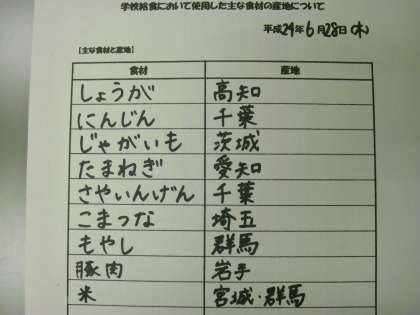 学校給食において使用した主な食材の産地について
平成24年6月28日(木)
【主な食材と産地】
食材 産地
しょうが 高知
にんじん 千葉
じゃがいも 茨城
たまねぎ 愛知
さやいんげん 千葉
こまつな 埼玉
もやし 群馬
豚肉 岩手
米 宮城・群馬